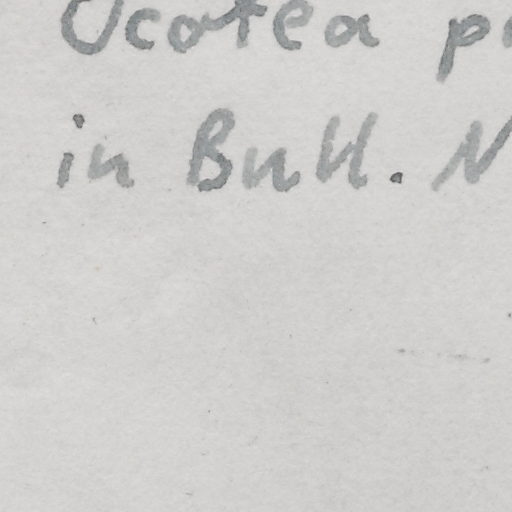 Ocotea p
in Bull. N